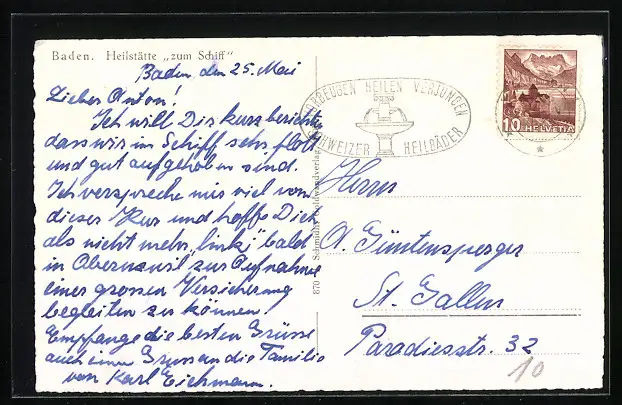 Baden. Heilstätte „zum Schiff"
Baden, den 25. Mai
Lieber Anton!
Ich will Dir kurz berichten
dass wir im Schiff sehr flott
und gut aufgehoben sind.
Ich verspreche mir viel von
dieser Kur und hoffe Dich
als nicht mehr „link" bald
in Abermwil zur Aufnahme
einer grossen Versicherung
begleiten zu können.
Empfange die besten Grüsse
auch einen Gruss an die Familie
von Karl Eichmann.
870 Schmidlin Goldwandverlag
VORBEUGEN HEILEN VERJÜNGEN
SCHWEIZER HEILBÄDER
10 HELVETIA
Herrn
A. Güntensperger
St. Gallen
Paradiesstr. 32
10